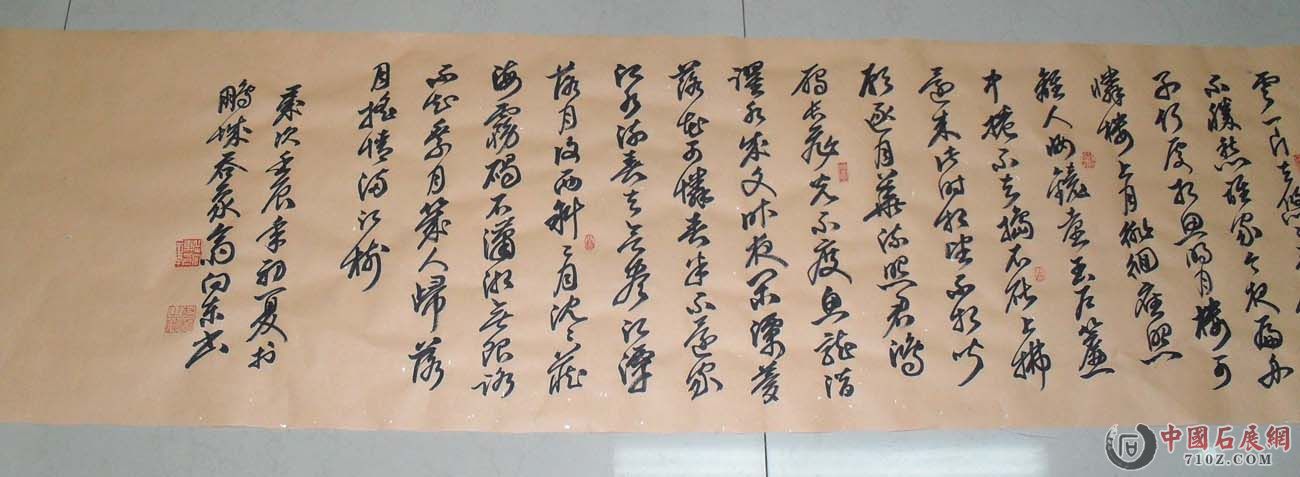 雲一片去悠
不勝愁誰家今夜扁舟
子何處相思明月樓可
憐樓上月徘徊應照
離人妝鏡臺玉戶簾
中捲不去擣衣砧上拂
還來此時相望不相聞
願逐月華流照君鴻
雁長飛光不度魚龍潛
躍水成文昨夜閑潭夢
落花可憐春半不還家
江水流春去欲盡江潭
落月復西斜〻月沈〻藏
海霧碣石瀟湘無限路
不知乘月幾人歸落
月搖情滿江樹
歲次壬辰年初夏於
鵬城吞象齋向東書
中國石展網
71OZ.COM